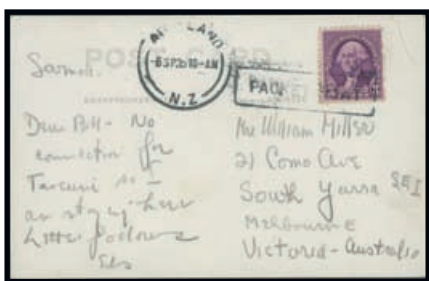 POST CARD
AUCKLAND
-6SP36 10-AM
N.Z.
PAQUEBOT
Samoa.
Dear Bill - No
connection for
so I
am staying here
Letter follows
Mr William Miller
21 Como Ave
South Yarra SE1
Melbourne
Victoria - Australia